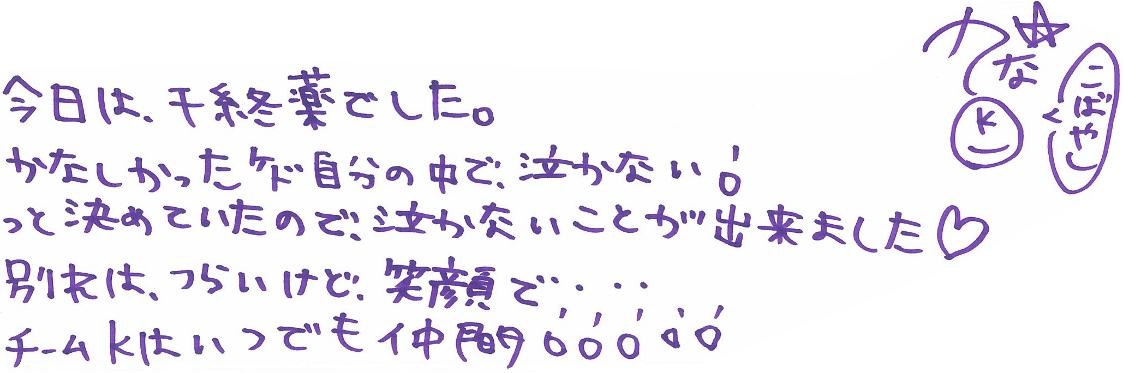 今日は、千終薬でした。
かなしかったケド自分の中で、泣かない!
っと決めていたので、泣かないことが出来ました♡
別れは、つらいけど、笑顔で・・・・
チームKはいつでも仲間!!!!!
かな☆
K
こばやし